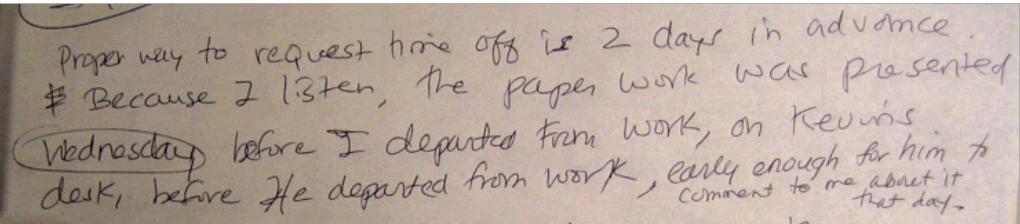 Proper way to request time off is 2 days in advance.
Because I listen, the paper work was presented
Wednesday before I departed from work, on Kevins
desk, before He departed from work, early enough for him to
comment to me about it
that day.